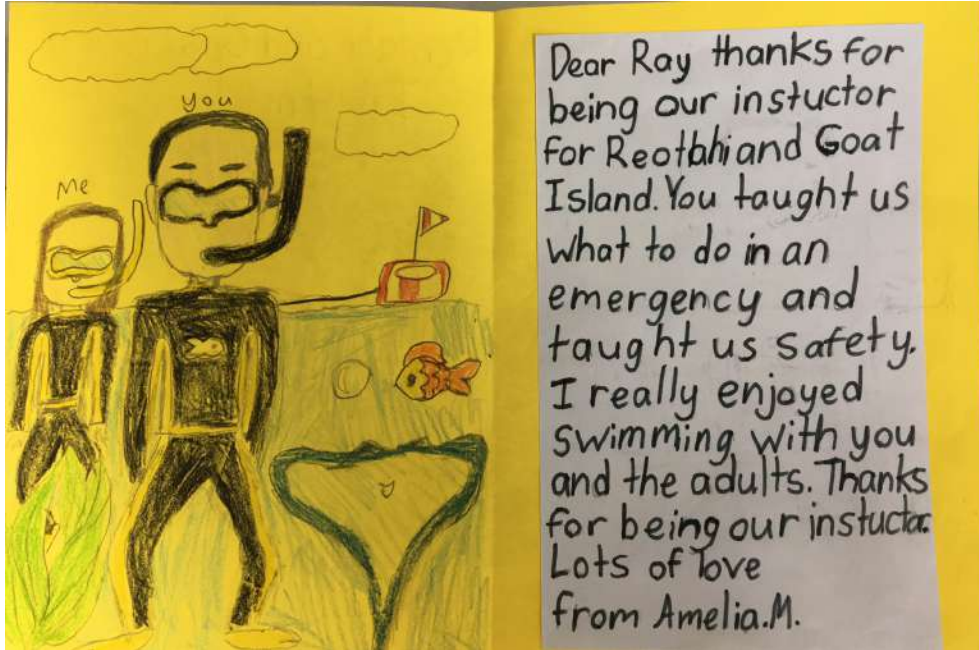 you
Me
Dear Ray thanks for
being our instuctor
for Reotahi and Goat
Island. You taught us
what to do in an
emergency and
taught us safety.
I really enjoyed
swimming with you
and the adults. Thanks
for being our instuctor.
Lots of love
from Amelia.M.